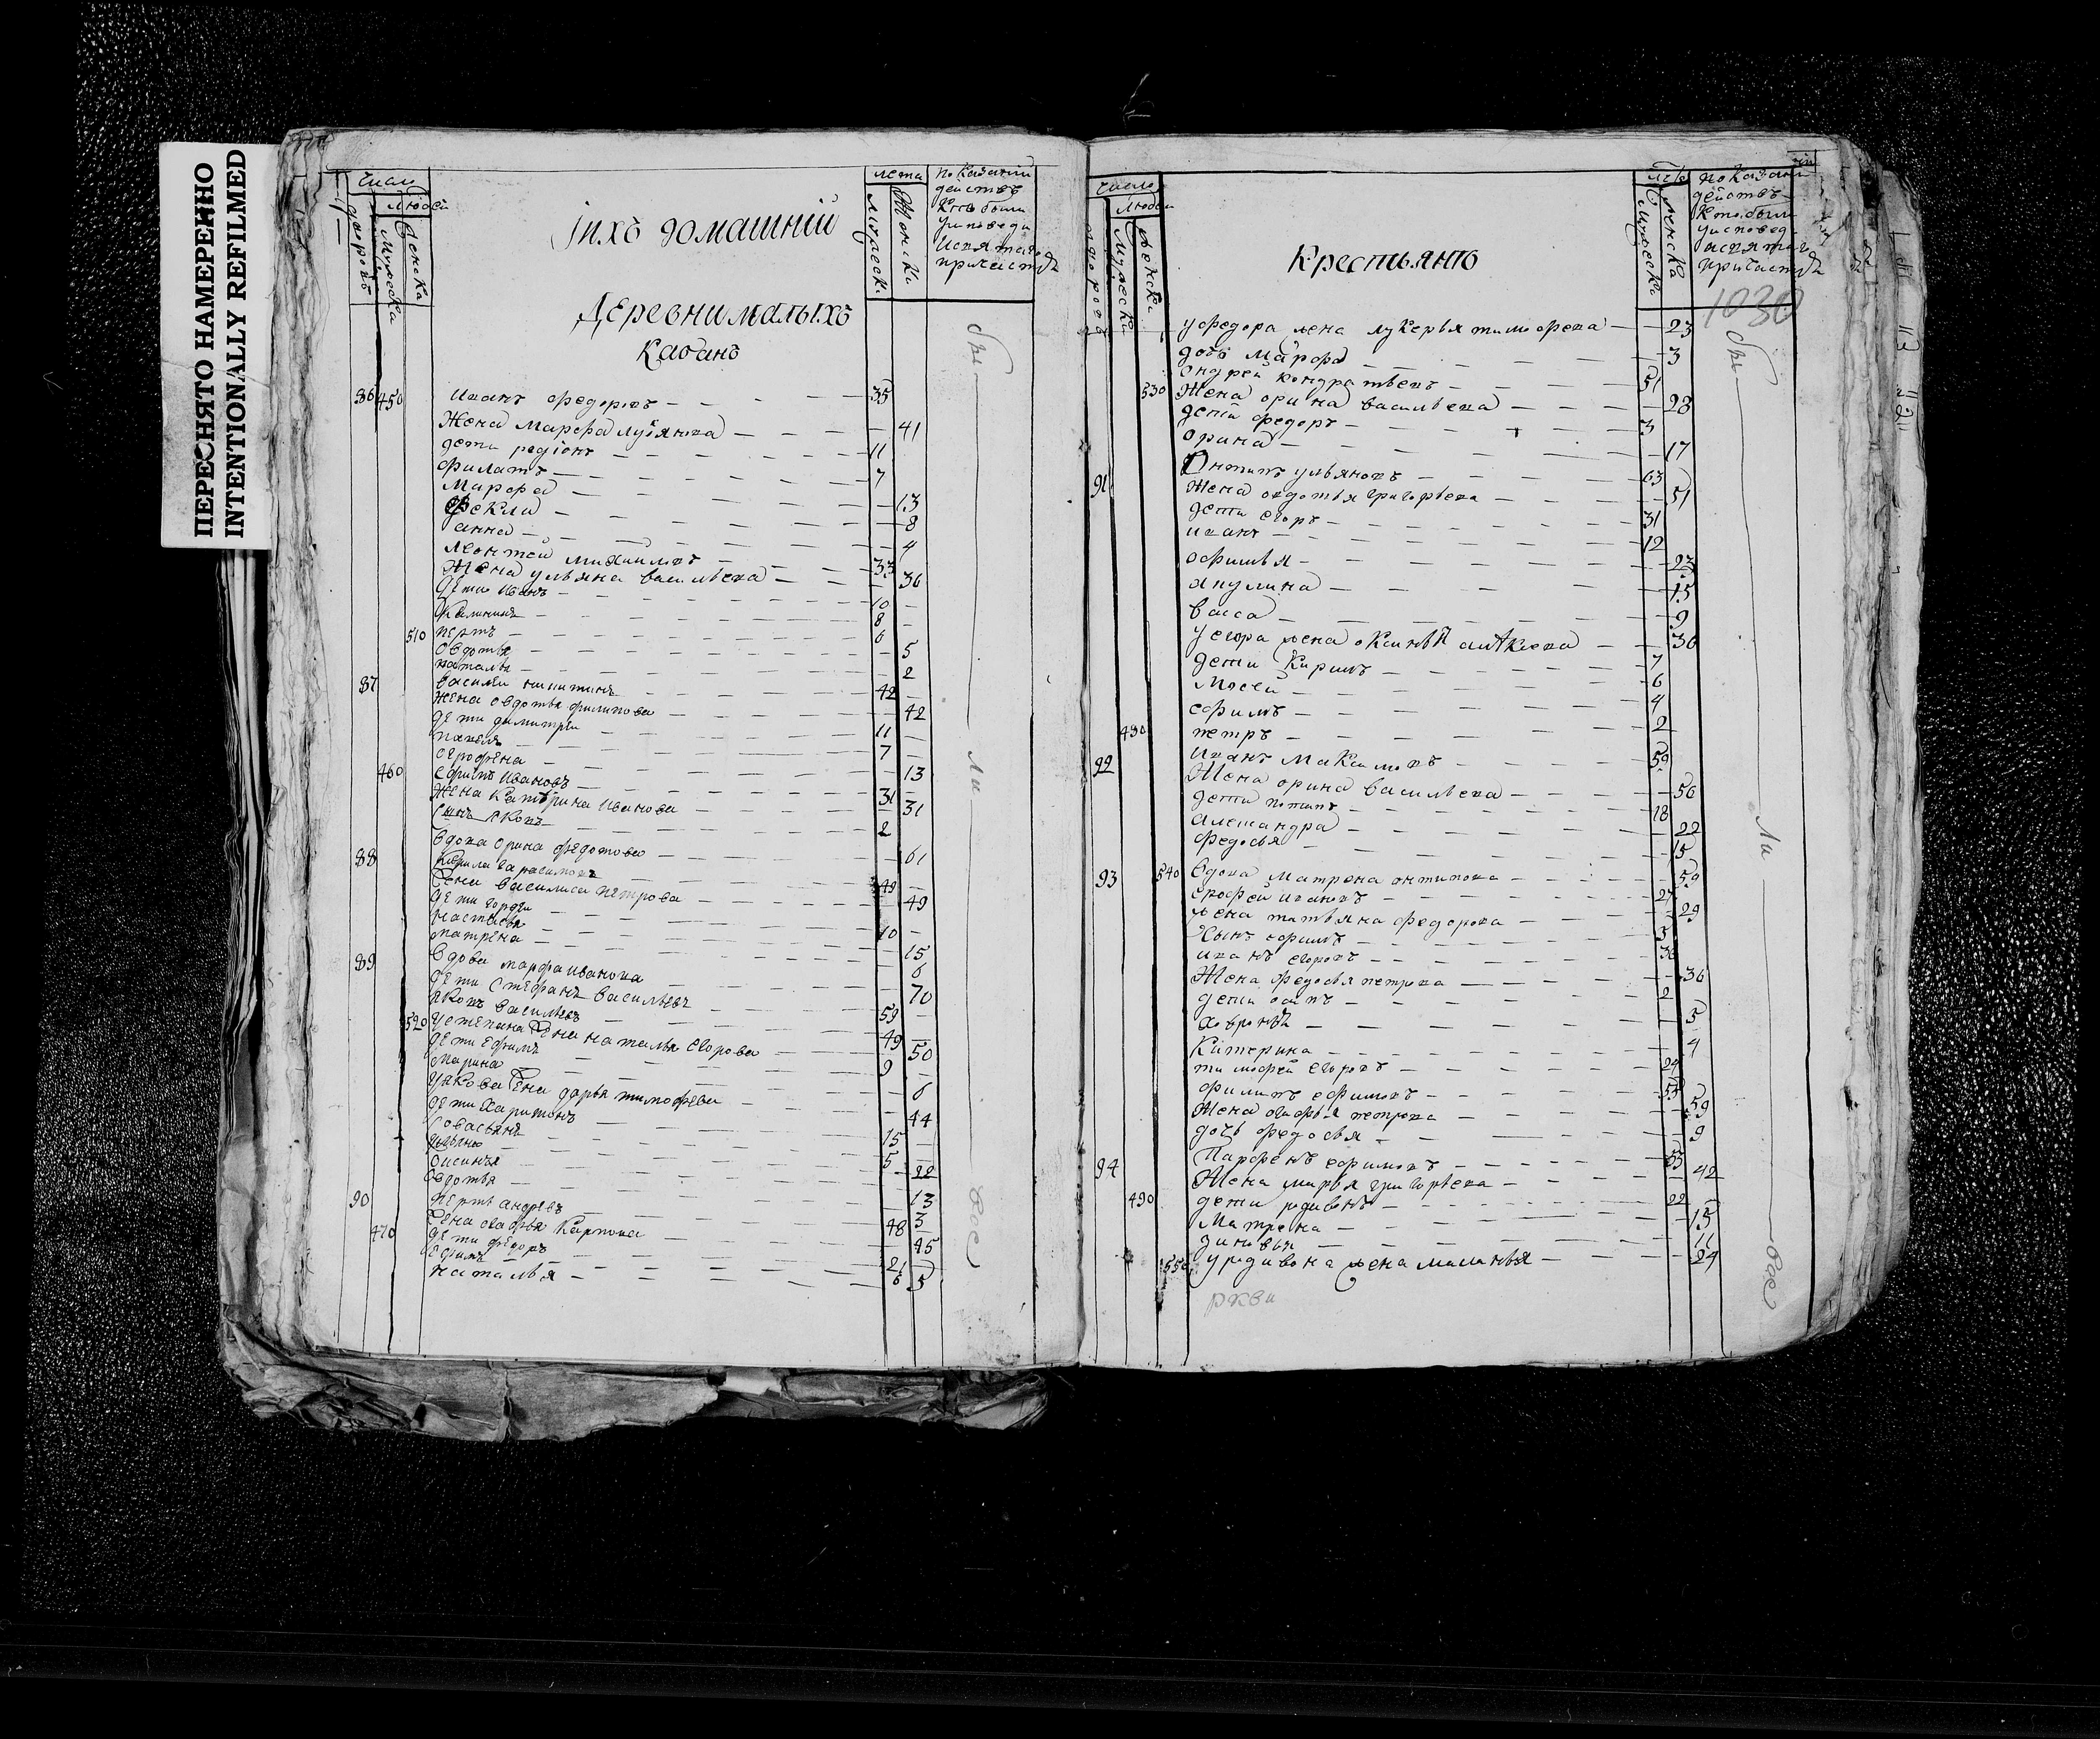 ПЕРЕСНЯТО НАМЕРЕННО
INTENTIONALLY REFILMED
число
людей
дворовъ
мужеска
женска
Iихъ домашнiй
Деревни малыхъ
кабанъ
лета
мужески
женски
показанiй
действъ
кто были
уисповеди
исвятаго
причастия
86 450 иванъ федоровъ 35
жена марфа лукянова 41
дети родiонъ 11
филатъ 7
марфа 13
фекла 8
анна 4
леонтей михаиловъ 33
жена ульяна васильева 36
дети иванъ 10
калинникъ 8
510 петръ 6
овдотья 5
наталья 2
87 василеи никитинъ 42
жена овдотья филипова 42
дети димитреи 11
павелъ 7
огрофена 13
460 ефимъ ивановъ 31
жена катерина иванова 31
сынъ яковъ 2
вдова орина федотова 61
88 кирила гарасимовъ 49
жена василиса петрова 49
дети гордеи 10
настасья 15
матрена 6
89 вдова марфа иванова 70
дети стефанъ васильевъ 59
яковъ васильевъ 49
520 устепана жена наталья егорова 50
дети ефимъ 9
марина 6
уякова жена дарья тимофеева 44
дети харитонъ 15
совастьянъ 5
ульяна 22
оксинья 13
овдотья 3
90 петръ андреевъ 48
жена огафья карпова 45
470 дети федоръ 21
ефимъ 6
наталья 5
были
ли
все
число
людей
дворовъ
мужеска
женска
Крестьянъ
летъ
мужески
женска
показани
действъ
кто были
уисповед
исвятаго
причастия
1030
уфедора жена лукерья тимофеева 23
дочь марфа 3
ондрей кондратьевъ 51
530 жена орина васильева 28
дети федоръ 3
орина 17
91 онтипъ ульяновъ 63
жена овдотья григорьева 51
дети егоръ 31
иванъ 12
офимья 23
акулина 15
васса 9
уегора жена оксинья алѣксева 30
дети кирилъ 7
мосей 6
ефимъ 4
480 петръ 2
92 иванъ максимовъ 59
жена орина васильева 56
дети потапъ 18
александра 22
федосья 15
93 540 вдова матрена онтипова 59
ерофей ивановъ 27
жена татьяна федорова 29
сынъ ефимъ 3
иванъ егоровъ 36
жена федосья петрова 36
дети осипъ 2
ховронья 5
катерина 4
тимофей егоровъ 24
филипъ ефимовъ 55
жена огафья петрова 59
дочь федосья 9
94 парфенъ ефимовъ 55
жена марья григорьева 42
490 дети родивонъ 22
матрена 15
зиновья 11
550 уродивона жена маланья 24
ркви
были
ли
все